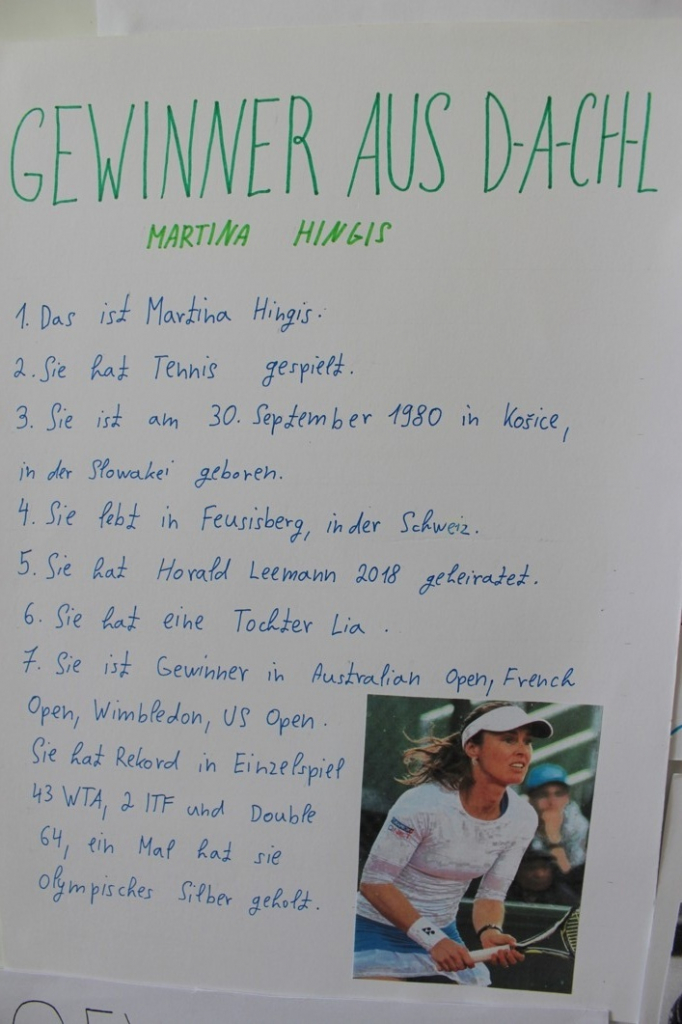 GEWINNER AUS D-A-CH-L
MARTINA HINGIS
1. Das ist Martina Hingis.
2. Sie hat Tennis gespielt.
3. Sie ist am 30. September 1980 in Košice,
in der Slowakei geboren.
4. Sie lebt in Feusisberg, in der Schweiz.
5. Sie hat Horald Leemann 2018 geheiratet.
6. Sie hat eine Tochter Lia.
7. Sie ist Gewinner in Australian Open, French
Open, Wimbledon, US Open.
Sie hat Rekord in Einzelspiel
43 WTA, 2 ITF und Double
64, ein Mal hat sie
olympisches Silber geholt.